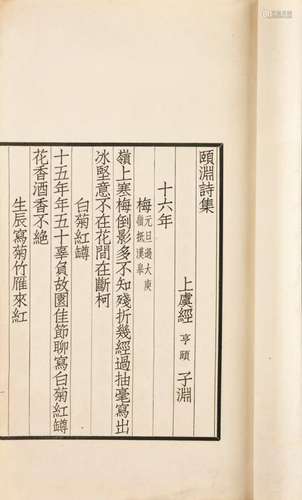 頤淵詩集
上虞經 亨頤 子淵
十六年
梅 元旦大庾
嶺抵漢皋
嶺上寒梅倒影多不知殘折幾經過抽毫寫出
冰堅意不在花間在斷柯
白菊紅罇
十五年年五十辜負故園佳節聊寫白菊紅罇
花香酒香不絕
生辰寫菊竹雁來紅